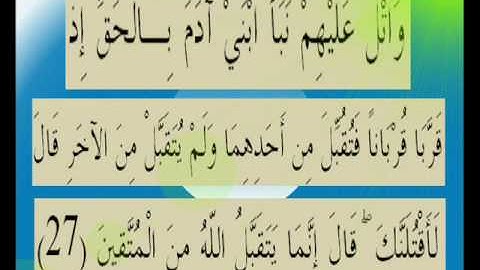 وَاتْلُ عَلَيْهِمْ نَبَأَ ابْنَيْ آدَمَ بِالْحَقِّ إِذْ
قَرَّبَا قُرْبَاناً فَتُقُبِّلَ مِن أَحَدِهِمَا وَلَمْ يُتَقَبَّلْ مِنَ الآخَرِ قَالَ
لَأَقْتُلَنَّكَ ۖ قَالَ إِنَّمَا يَتَقَبَّلُ اللَّهُ مِنَ الْمُتَّقِينَ (27)